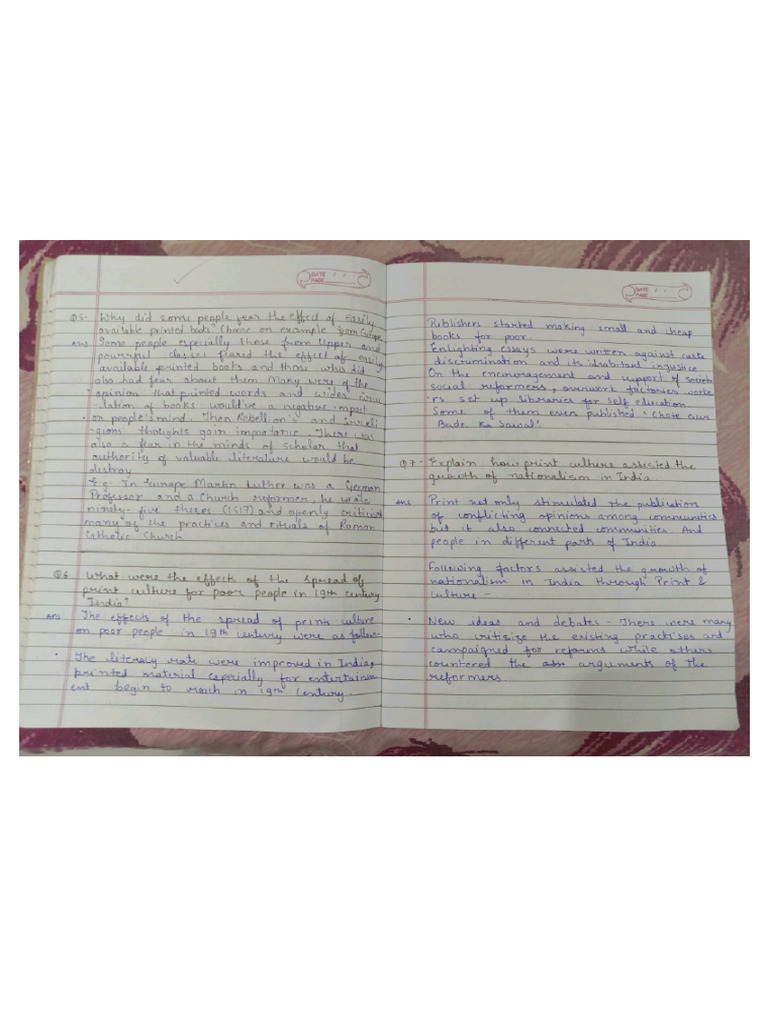 DATE / /
PAGE
Q5- Why did some people fear the effect of Easily
available printed books? Choose on example from Europe
Ans Some people especially those from Upper and
powerful classes feared the effect of easily
available printed books and those who did
also had fear about them Many were of the
opinion that printed words and wides circu
lation of books would've a negative impact
on people's mind. Then Rebellion's and irreli
gions thoughts gain importance. There was
also a fear in the minds of scholar that
authority of valuable literature would be
destroy
E.g- In Europe Martin Luther was a German
Professor and a Church reformer, he wrote
ninety-five theses (1517) and openly criticised
many of the practices and rituals of Roman
Catholic Church
Q6 What were the effects of the spread of
print culture for poor people in 19th century
India?
Ans The effects of the spread of prints culture
on poor people in 19th century were as follow-
• The literacy rate were improved in India,
printed material especially for entertainm
ent begin to reach in 19th Century.
DATE / /
PAGE
Publishers started making small and cheap
books for poor.
Enlighting essays were written against caste
discrimination and its inhabitant injustice
On the encouragement and support of
social reformers, overwork factories worke
rs set up libraries for self education.
Some of them even published 'Chote aur
Bade Ka Sawal'
Q7- Explain how print culture assisted the
growth of nationalism in India
Ans Print not only stimulated the publication
of conflicting opinions among communities
but it also connected communities And
people in different parts of India
Following factors assisted the growth of
nationalism in India through Print &
culture -
• New ideas and debates - There were many
who critisize the existing practises and
campaigned for reforms while others
countered the arguments of the
reformers